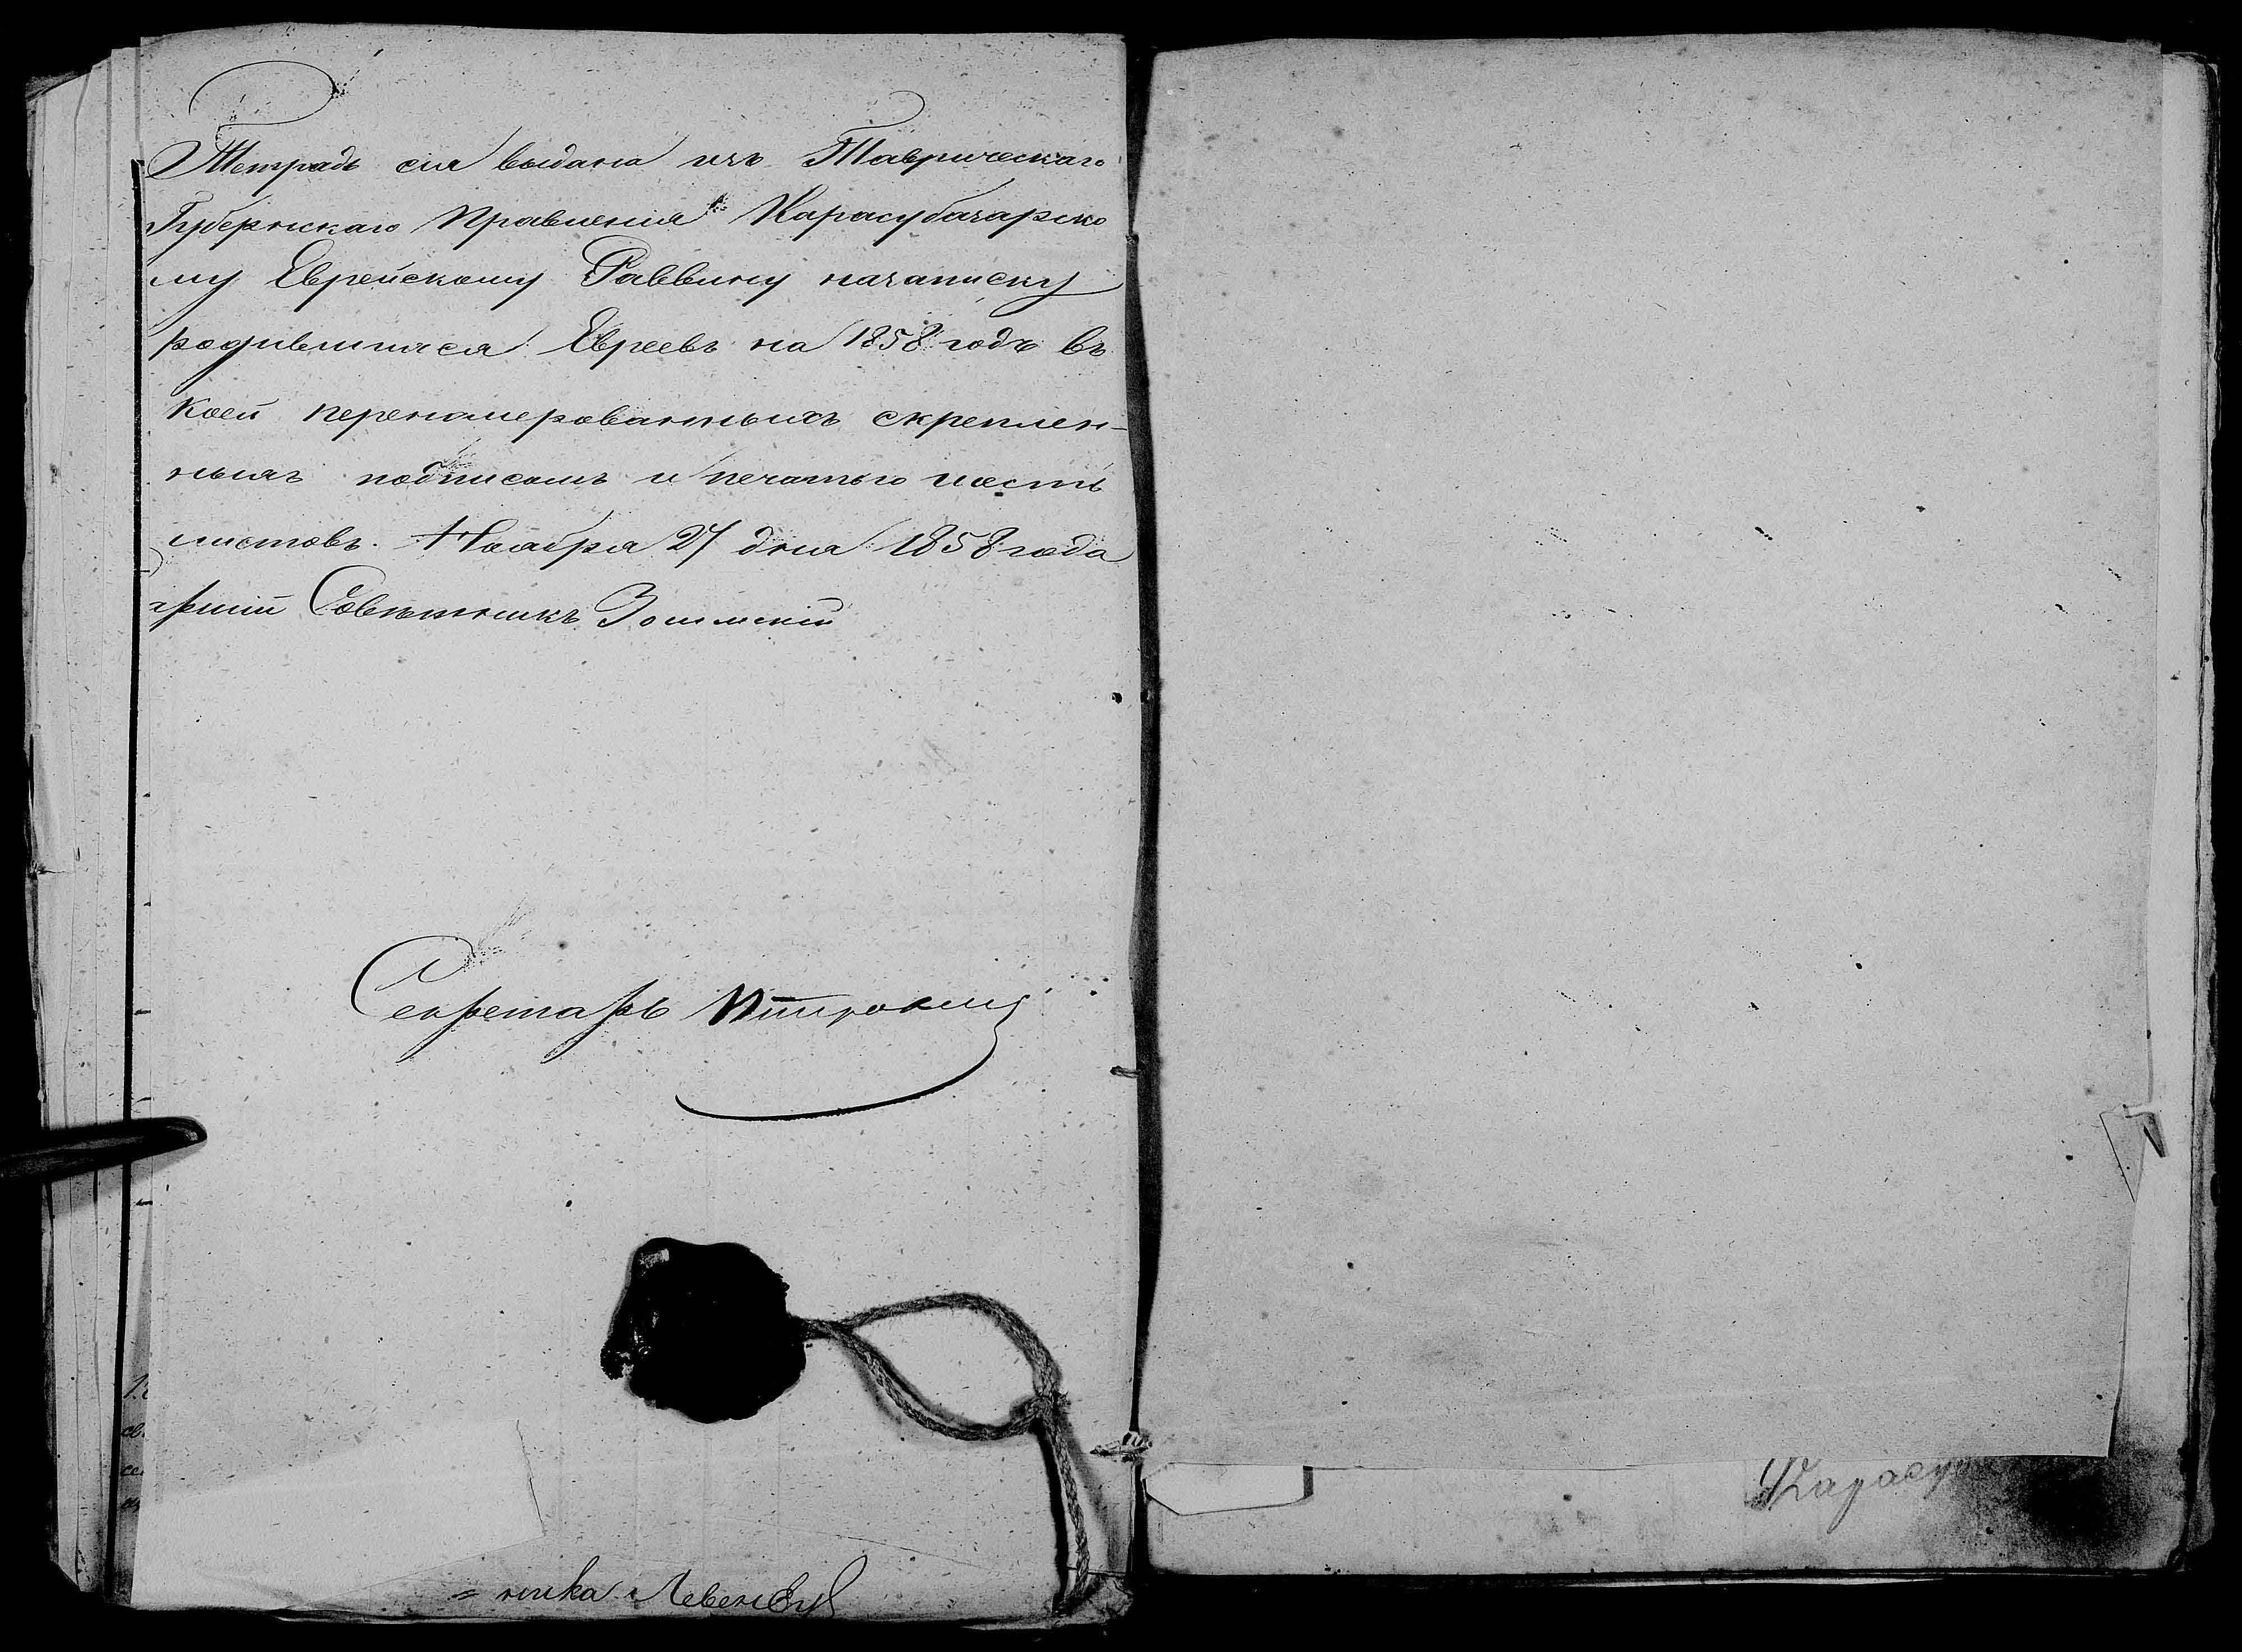 Тетрадь сія выдана изъ Таврическаго
Губернскаго Правленія Карасубазарско
му Еврейскому Раввину на записку
родившихся Евреевъ на 1858 годъ въ
коей перенумерованныхъ скреплен-
ныхъ подписомъ и печатью шесть
листовъ. Ноября 27 дня 1858 года
Совѣтникъ
Секретарь
= ника
Карасу